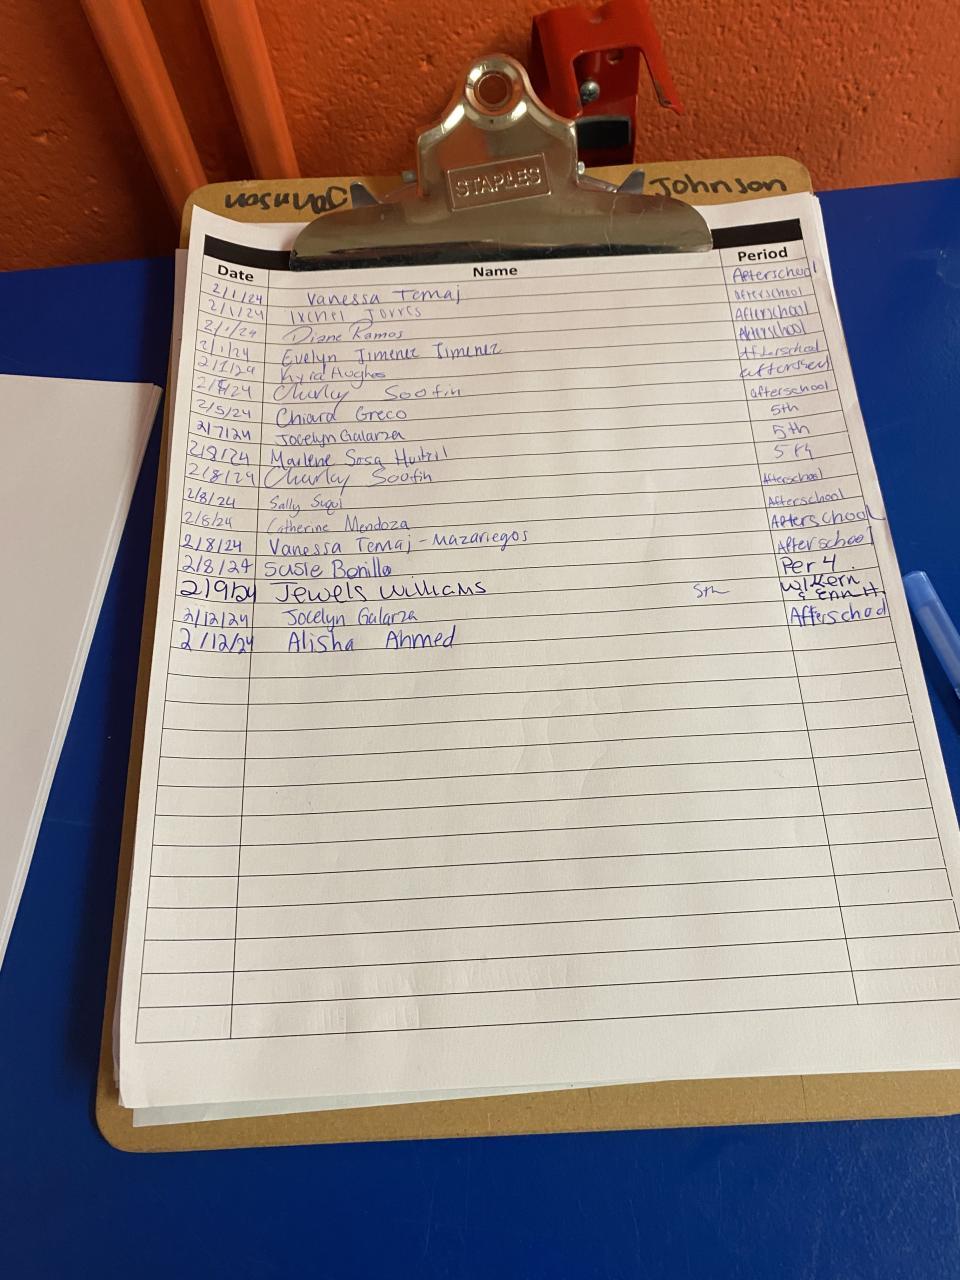 Johnson
STAPLES
Johnson
Date Name Period
2/1/24 Vanessa Temaj Afterschool
2/1/24 Ixchel Torres afterschool
2/1/24 Diane Ramos Afterschool
2/1/24 Evelyn Jimenez Jimenez Afterschool
2/1/24 Kyra Hughes Afterschool
2/ /24 Charly Soofin afterschool
2/5/24 Chiara Greco afterschool
2/7/24 Jocelyn Galarza 5th
2/8/24 Marlene Sosa 5th
2/8/24 Charly Soofin 5th
2/8/24 Sally Suqui Afterschool
2/8/24 Catherine Mendoza Afterschool
2/8/24 Vanessa Temaj-Mazariegos Afterschool
2/8/24 Susie Bonilla Afterschool
2/9/24 Jewels Williams Per 4
2/12/24 Jocelyn Galarza 5th
2/12/24 Alisha Ahmed Afterschool